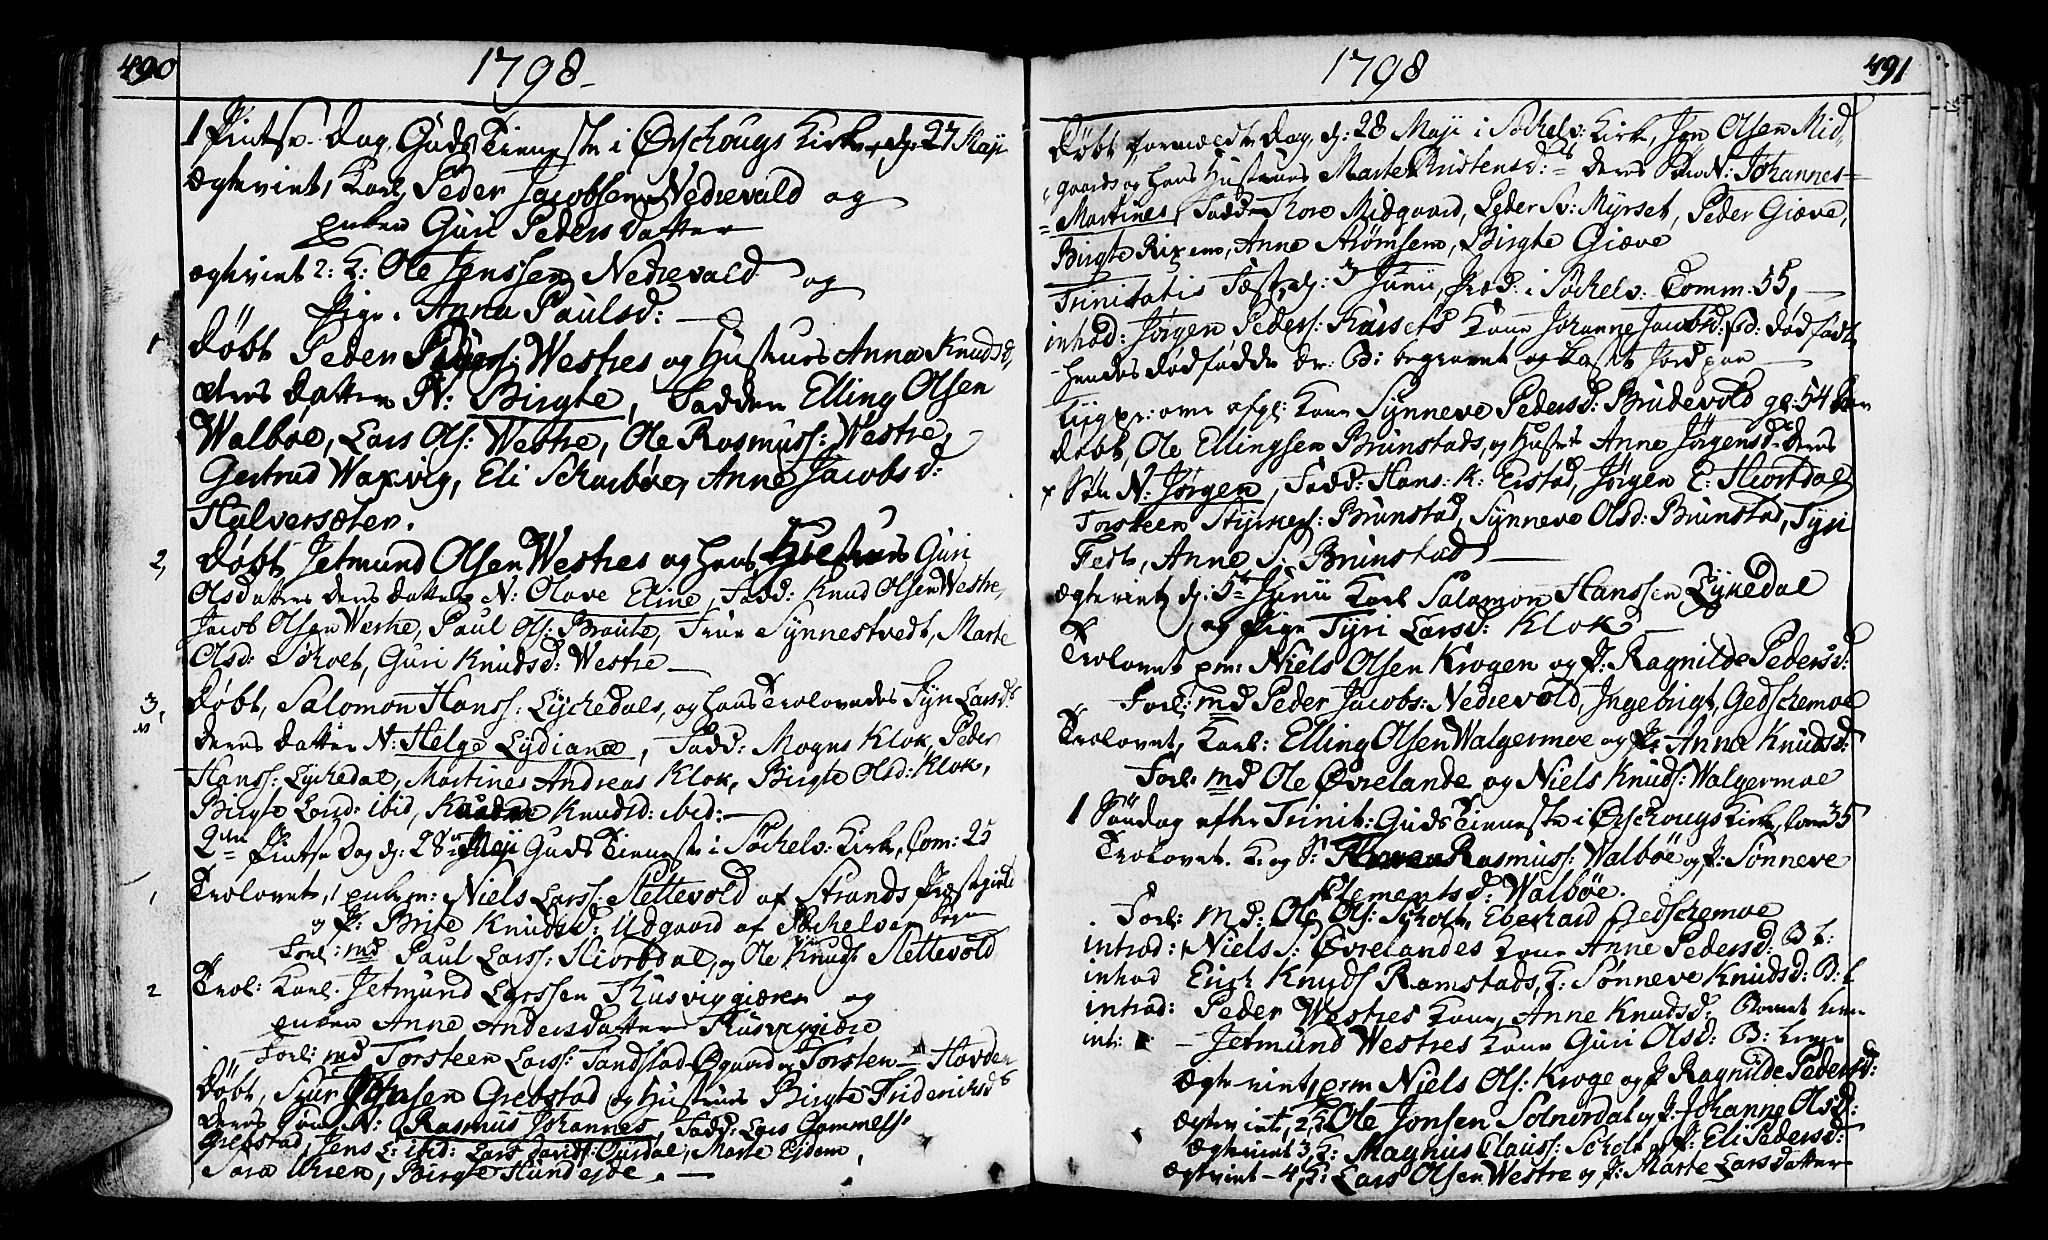 490
1798.
1 Pintse Dag, Guds Tieneste i Ørschougs Kirke, dj. 27 Maji
Ægteviet, Karl Peder Jacobsen Nedrevald og
Enken Guri Peders Datter
ægteviet 2: K: Ole Jenssen Nedrevald og
Pige. Anna Paulsd:
1 Døbt Peder Peders: Westres og Hustrues Anna Knudsd.
deres Datter N: Birgte, Fadder Elling Olsen
Walbøe, Lars Ols: Westre, Ole Rasmuss: Westre,
Gertrud Waxvig, Eli Scharbøe, Anne Jacobsd:
Halversæter.
2, Døbt Jetmund Olsen Westres og hans Hustrues Guri
Olsdatters deres datter N: Olave Eline, Fadd: Knud Olsen Westre,
Jacob Olsen Westre, Paul Ols: Braute, Frue Synnestvedt, Marte
Olsd: Scholt, Guri Knudsd: Westre
3, Døbt, Salomon Hanss: Lyckedals, og hans Trolovedes Tyri Larsds
deres datter N: Helge Lydianæ, Fadd: Mogns Klok, Peder
Hanss: Lyckedal, Martines Andreas Klok, Birgte Olsd: Klok,
Birgte Larsd: ibid, Knudsd: ibid:
2den Pintse Dag dj: 28 Maji Guds Tieneste i Søchelv: Kirke, Com: 25
1 Trolovet, Niels Larss: Slettevold af Strands Præstegield
og P: Brite Knudsd: Udgaard af Søchelvens Sogn
Forl: md Paul Larss: Hiortdal, og Ole Knuds: Slettevold
2 Trol: Karl. Jetmund Larssen Tusvigiæren og
Enken Anne Andersdatter Tusvigiære
Forl: md Torsteen Larss: Sandstad Øgaard og Torsten Hovden
Døbt, Siur Johnsen Grebstad og Hustrues Birgte Friderichsds
deres Søn N: Rasmus Johannes, Fadd: Lars Gammels:
Grebstad, Jens L: ibid: Lars Davids: Ourdal, Marte Ejdem,
Sara Uren, Birgte Hundejde.
1798
491
Døbt formeldte Dag, dj: 28 Maji i Søchelv: Kirke, Jon Olsen Mid-
gaards og hans Hustrues Marte Christensd: deres Søn N: Johannes
Martines, Fadd: Tore Midgaard, Peder Sv: Myrset, Peder Giæve,
Birgte Rixem, Anne Strømsem, Birgte Giæve
Trinitatis Fæst, dj: 3 Junii, Præd: i Søchelv: Comm: 55,
introd: Jørgen Peders: Farsets Kone Johanne Jacobsd: B: dødfødt
hendes dødfødde Dr: B: begravet og kastet Jord paa
Liigpr: over afgl: Kone Synneve Pedersd: Brudevold gl: 54 Aar
døbt, Ole Ellingsen Brunstads, og Hustrues Anne Jørgensd: deres
Søn N: Jørgen, Fadd: Hans: K: Erstad, Jørgen E: Hiortdal
Torsteen Styrkers: Brunstad, Synneve Olsd: Brunstad, Tyri
Fedt, Anne S: Brunstad
Ægteviet dj: 5te Junii Karl Salomon Hanssen Lyckedal
og Pige Tyri Larsd: Klok
Trolovet Niels Olsen Krogen og P: Ragnilde Pedersd:
Forl: md Peder Jacobs: Nedrevold, Ingebrigt, Gedschemoe
Trolovet, Karl: Elling Olsen Walgermoe og P: Anna Knudsd:
Forl: md Ole Øvrelande og Niels Knuds: Walgermoe
1 Søndag efter Trinit: Guds Tieneste i Ørschougs Kirke, Com: 35
Trolovet. K. og S: Rasmuss: Walbøe og P: Sønneve
Klementsd: Walbøe.
Forl: md: Ole Ols: Scholt, Eberhard Gedschemoe
introd: Niels S: Øvrelandes Kone Anne Pedersd: B l:
introd Erich Knuds Ramstads, K: Sønneve Knudsd: B: l
introd: Peder Westres Kone, Anne Knudsd: Barnet
int: Jetmund Westres Kone Guri Olsd: B:
Ægteviet, Niels Ols: Kroge og P Ragnilde Pedersd:
ægteviet, 2, K: Ole Jonsen Solnordal og P: Johanne Olsd:
Ægteviet 3, K: Magnus Clauss: Scholt og P: Eli Pedersd:
Ægteviet 4, K: Lars Olsen Westre og P: Marte Larsdatter